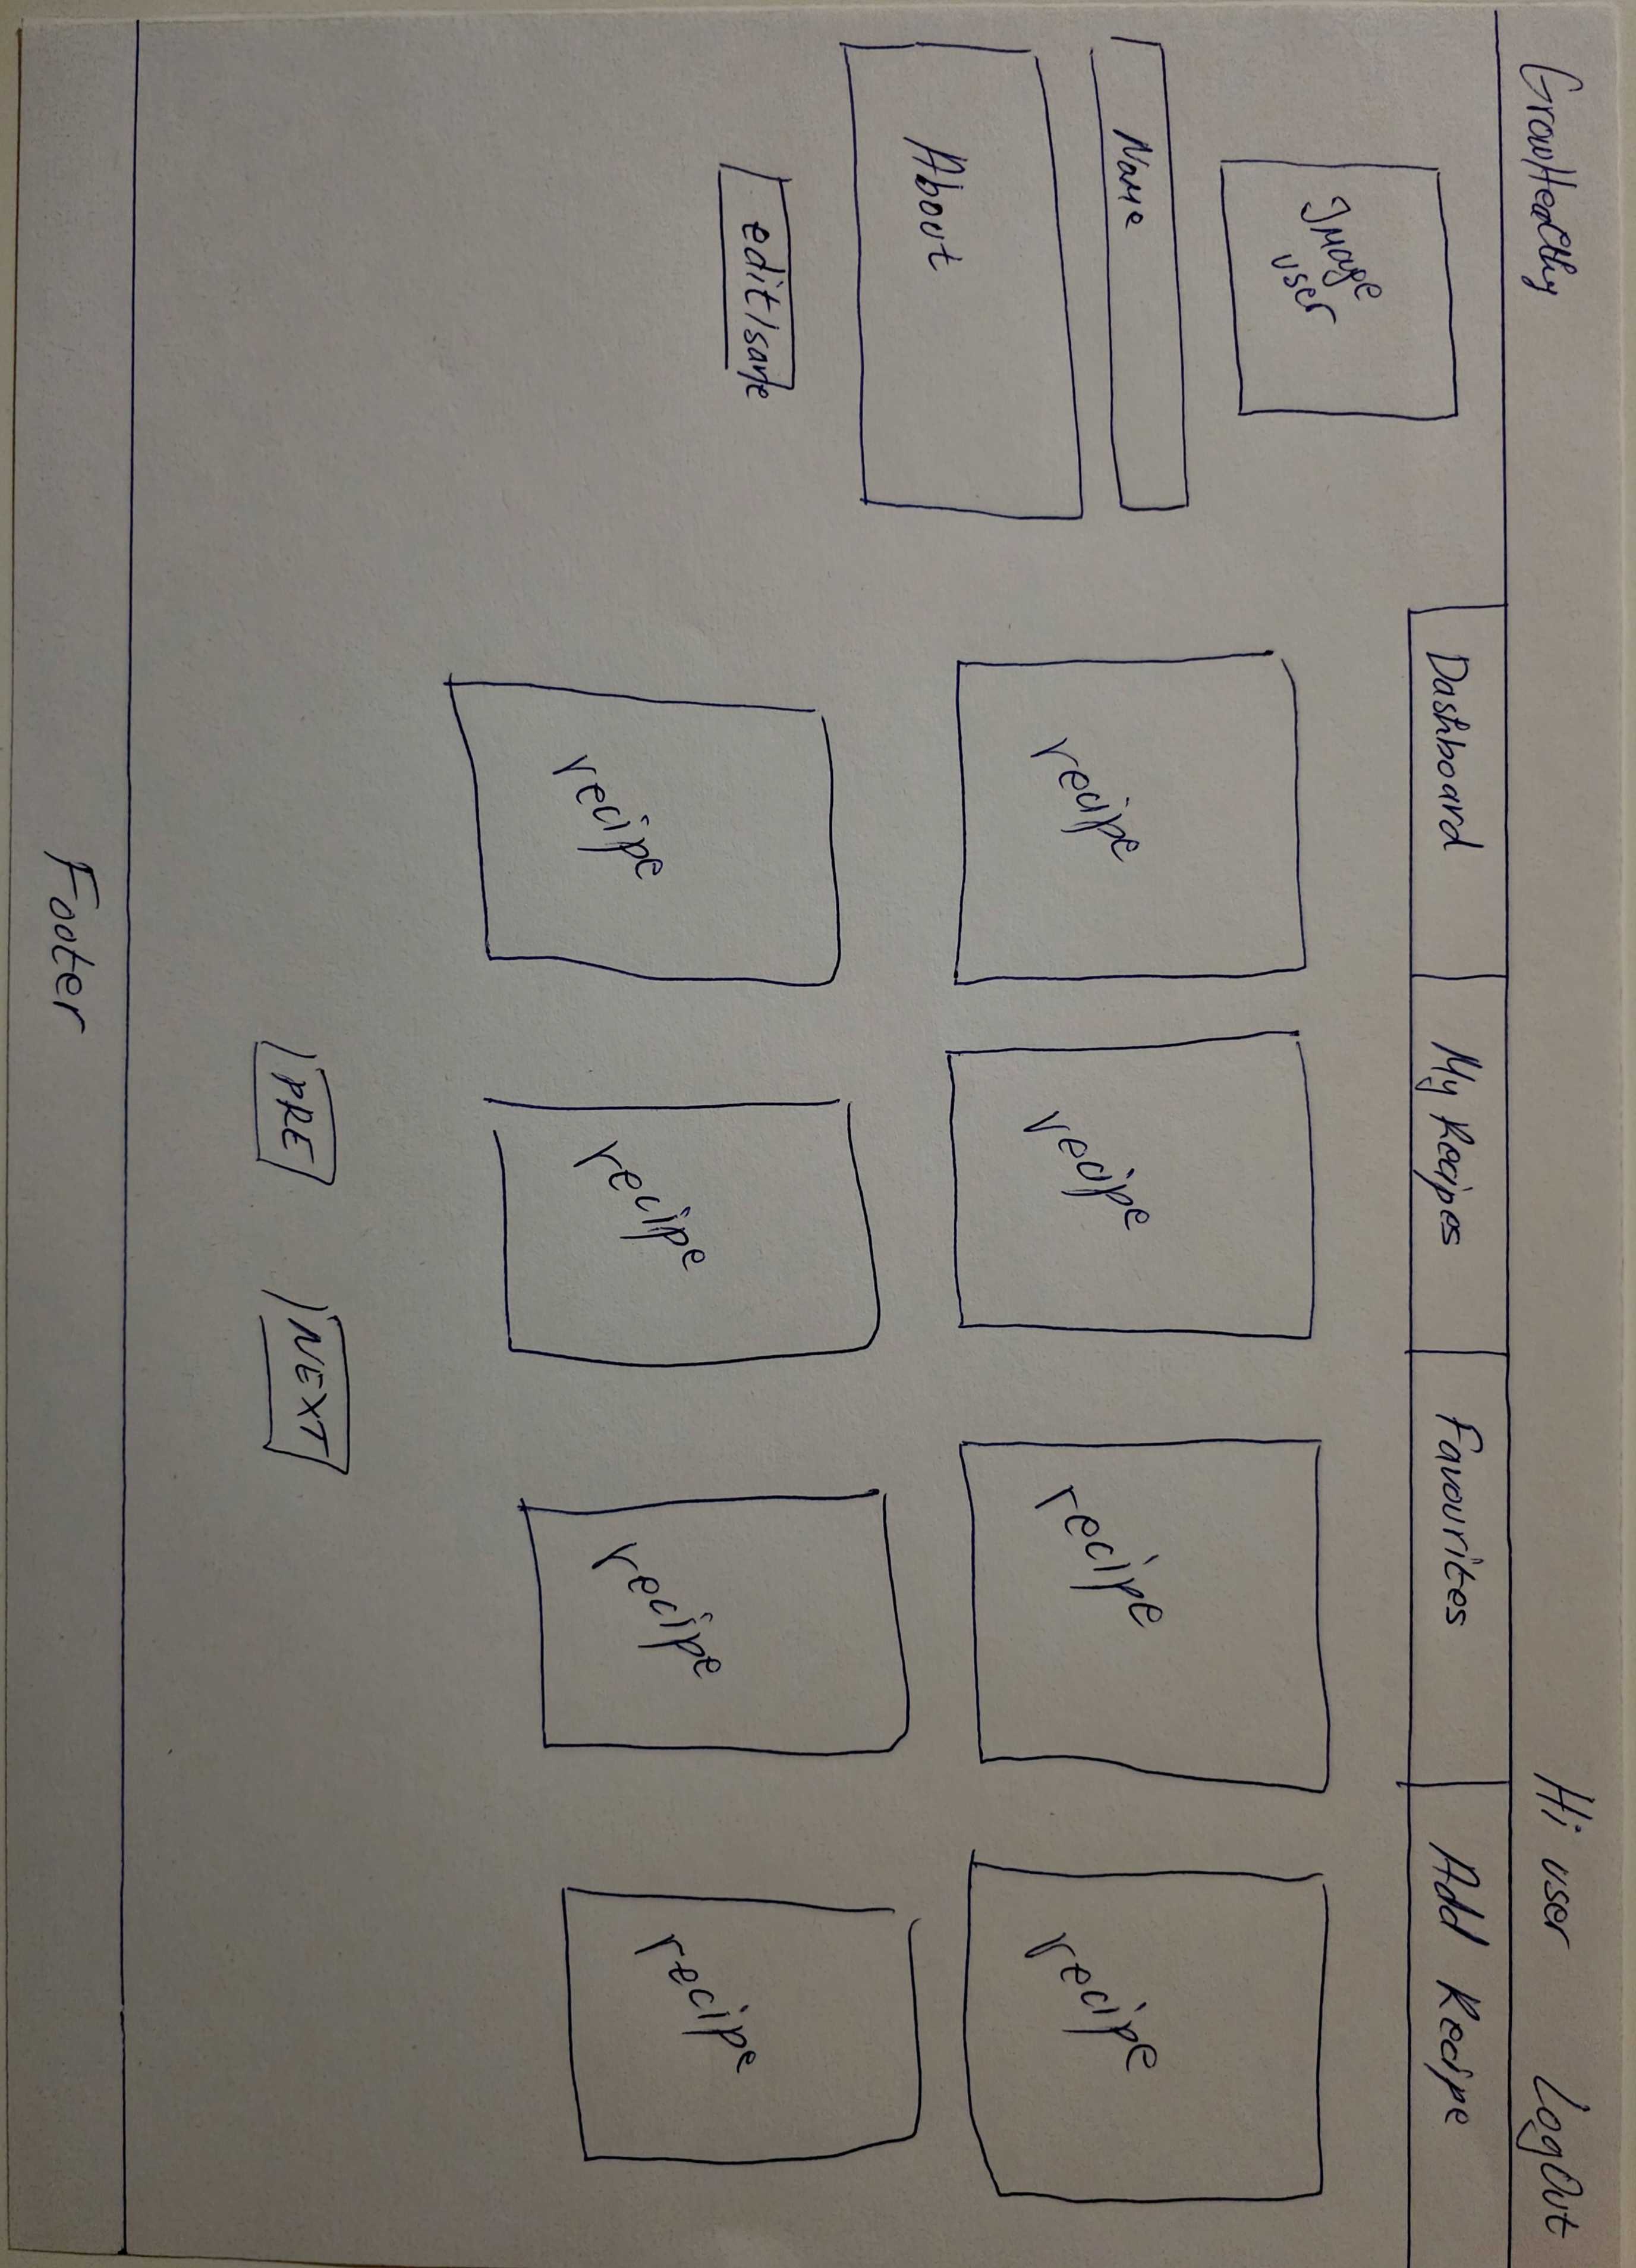 GrowHealthy
Hi user
LogOut
Dashboard
My Recipes
Favourites
Add Recipe
Image
user
Name
About
edit/save
recipe
recipe
recipe
recipe
recipe
recipe
recipe
recipe
PRE
NEXT
Footer